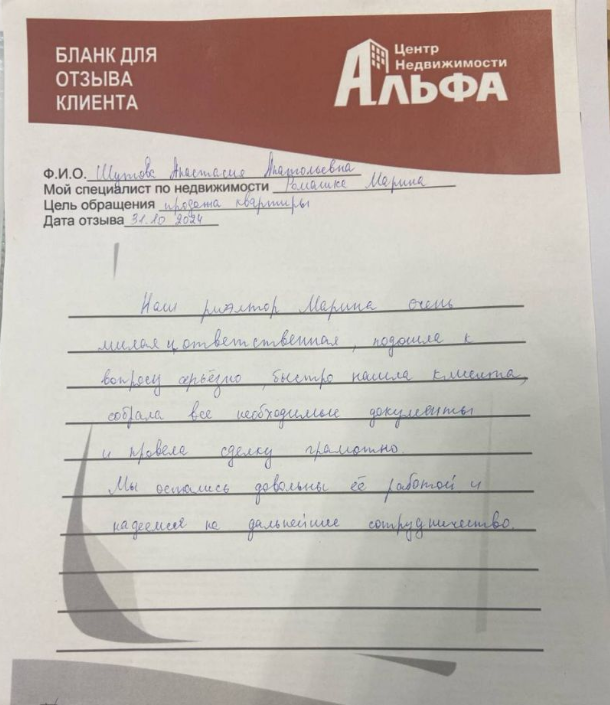 БЛАНК ДЛЯ
ОТЗЫВА
КЛИЕНТА
Центр
Недвижимости
АЛЬФА
Ф.И.О. Шутова Анастасия Анатольевна
Мой специалист по недвижимости Ромашка Марина
Цель обращения продажа квартиры
Дата отзыва 31.10.2024
Наш риэлтор Марина очень
милая и ответственная, подошла к
вопросу серьёзно, быстро нашла клиента,
собрала все необходимые документы
и провела сделку грамотно.
Мы остались довольны её работой и
надеемся на дальнейшее сотрудничество.